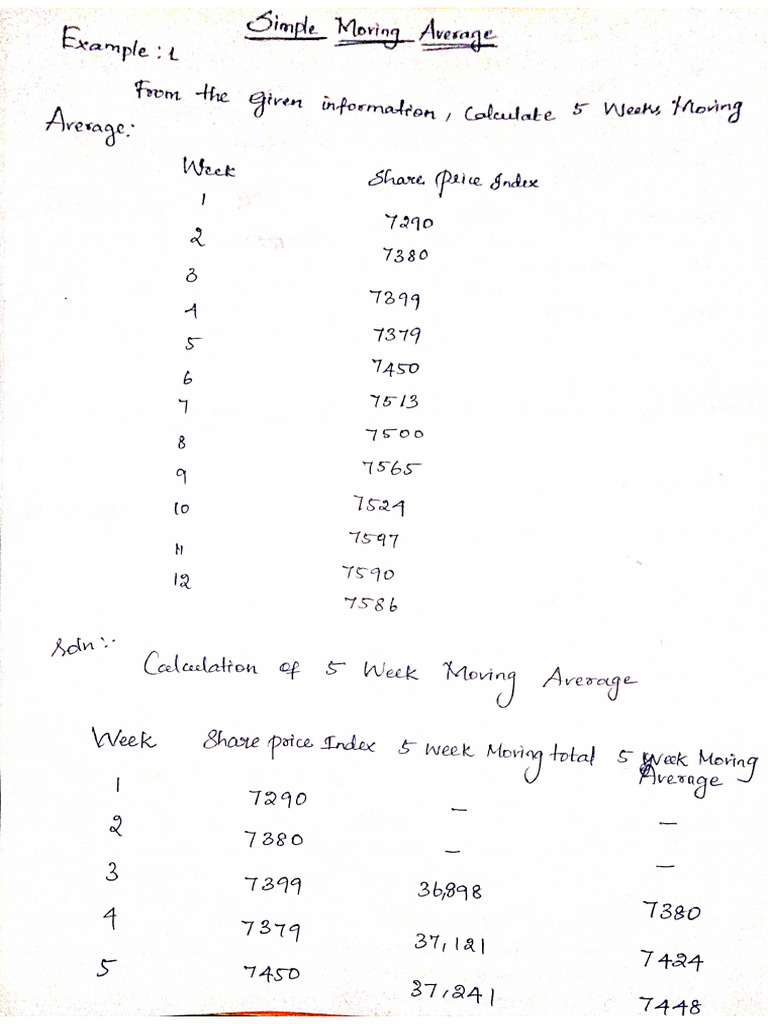 Simple Moving Average
Example: 1
From the given information, Calculate 5 Weeks Moving
Average:
Week Share Price Index
1 7290
2 7380
3 7399
4 7379
5 7450
6 7513
7 7500
8 7565
9 7524
10 7597
11 7590
12 7586
Soln:-
Calculation of 5 Week Moving Average
Week Share price Index 5 week Moving total 5 Week Moving
Average
1 7290 – –
2 7380 – –
3 7399 36,898 7380
4 7379 37,121 7424
5 7450 37,241 7448